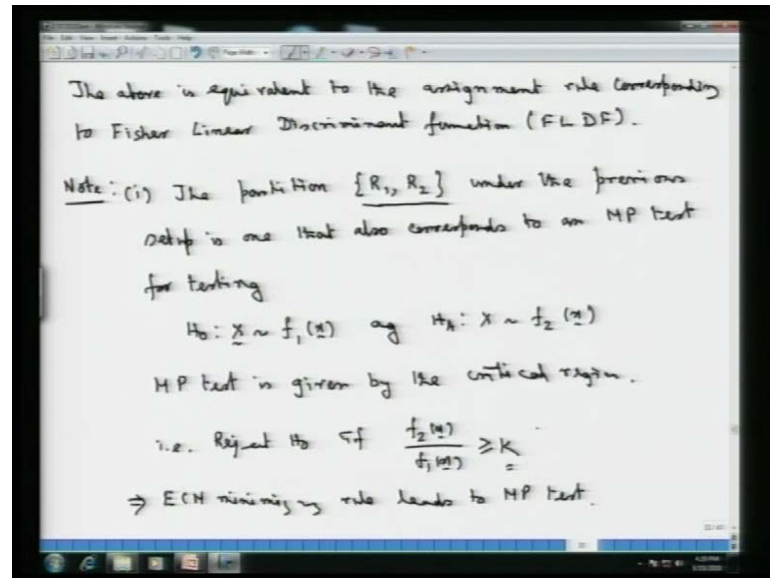 The above is equivalent to the assignment rule corresponding
to Fisher Linear Discriminant function (FLDF).
Note: (i) The partition {R₁, R₂} under the previous
setup is one that also corresponds to an MP test
for testing
H₀: x ~ f₁(x) ag H_A: x ~ f₂(x)
MP test is given by the critical region.
i.e. Reject H₀ if f₂(x)/f₁(x) ≥ K
⇒ ECM minimizing rule leads to MP test.